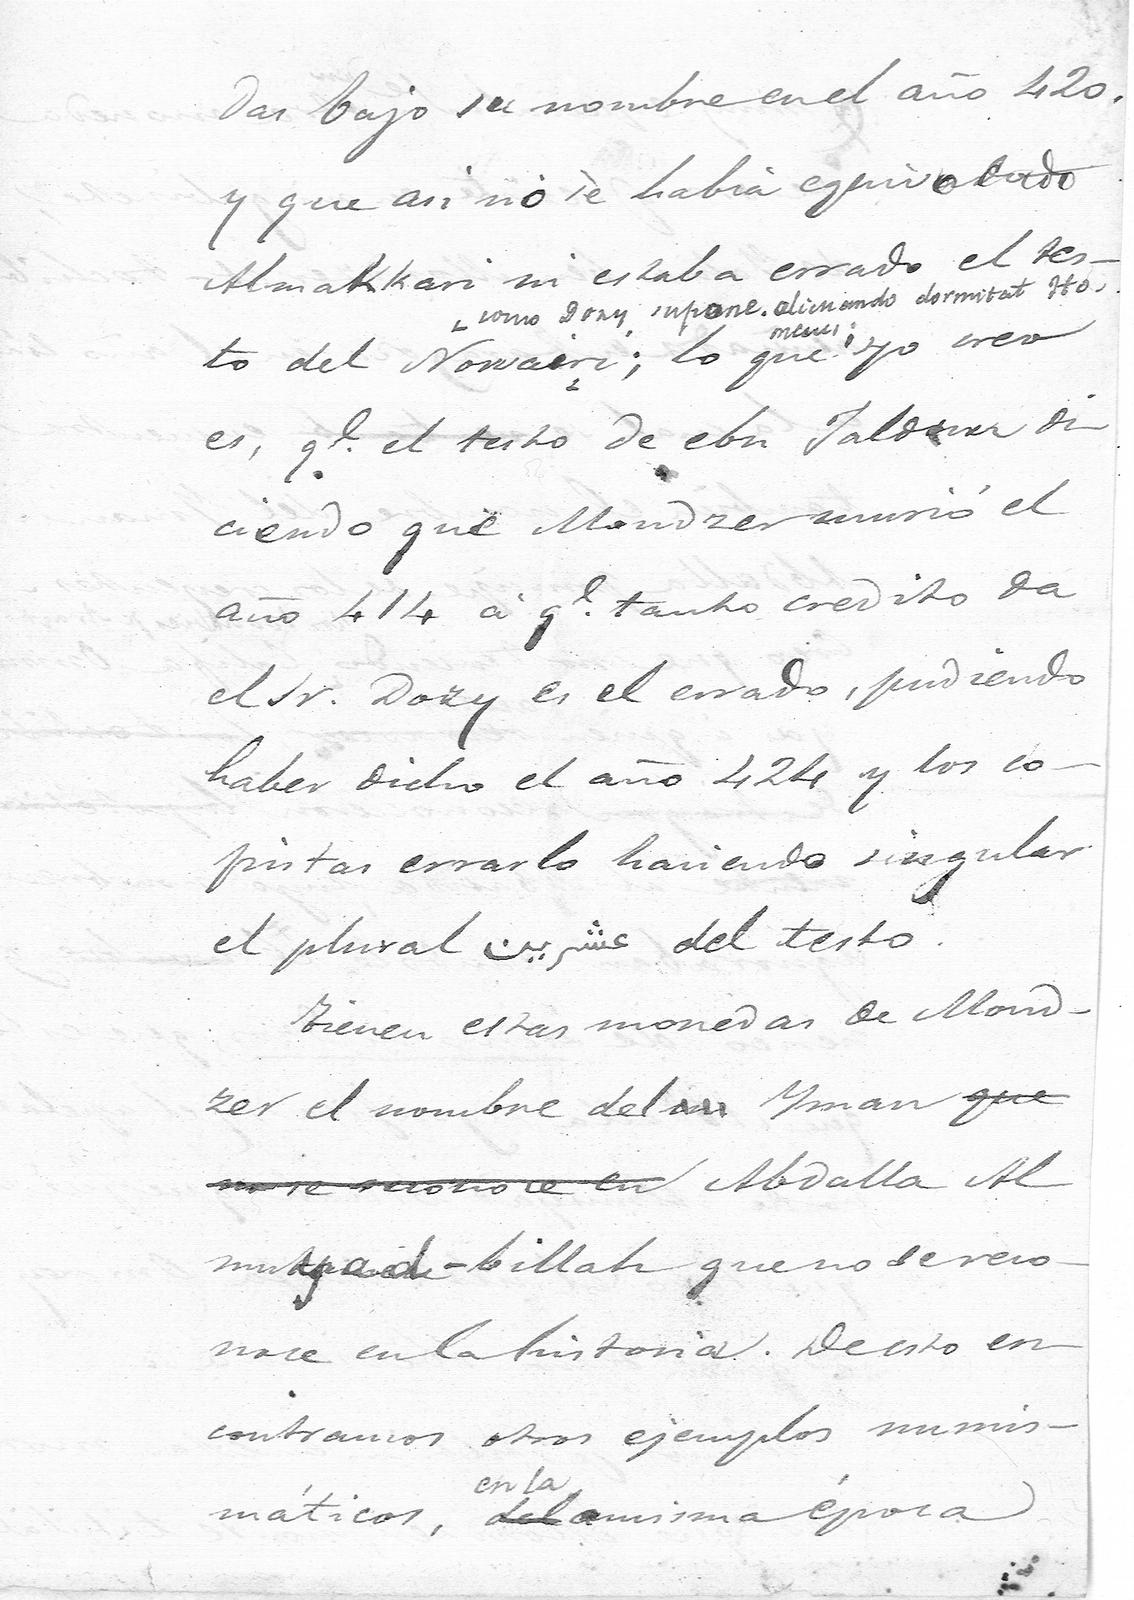 das bajo su nombre en el año 420.
y que asi no se habia equivocado
Almakkari ni estaba errado el tes-
como Dozy supone. aliquando dormitat Ho-
merus;
to del Nowairi; lo que yo creo
es, q.e el testo de ebn Jaldun di-
ciendo que Mondzer murió el
año 414 á q.e tanto credito da
el Sr. Dozy es el errado, pudiendo
haber dicho el año 424 y los co-
pistas errarlo haciendo singular
el plural عشرين del testo.
Tienen estas monedas de Mond-
zer el nombre del Yman que
no se reconoce en Abdalla Al
muyad-billah que no se reco-
noce en la historia. De esto en
contramos otros ejemplos numis-
en la
máticos, de la misma época